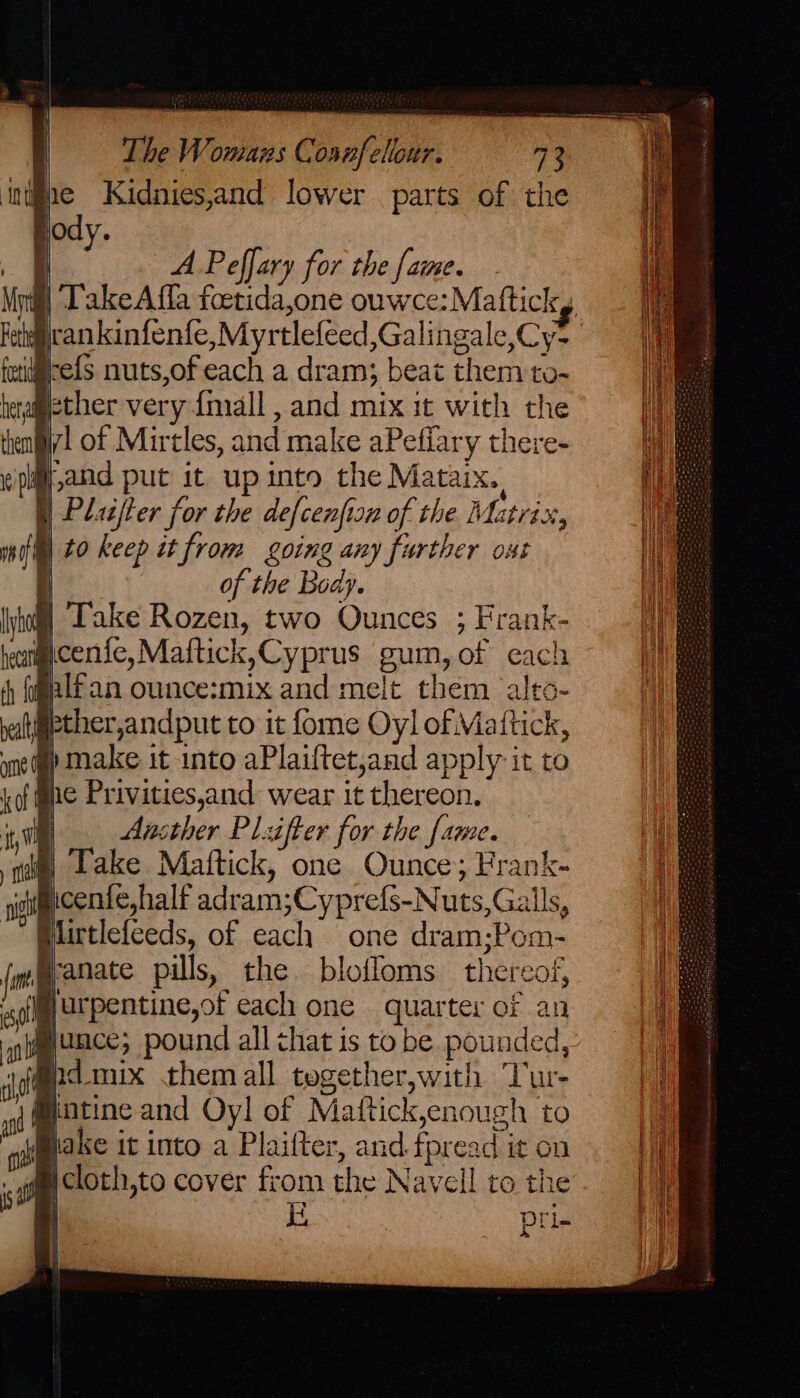 The Womans Counſellour. 73
the Kidnies,and lower parts of the
Body.
A Peſſary for the ſame.
Take Aſſa fœtida,one ouwce: Maſtick,
Frankinſenſe, Myrtleſeed,Galingale,Cy-
preſs nuts,of each a dram; beat them to-
gether very ſmall , and mix it with the
Oyl of Mirtles, and make aPeſſary there-
of,and put it up into the Mataix.
A Plaiſter for the deſcenſion of the Matrix,
to keep it from going any further out
of the Body.
Take Rozen, two Ounces ; Frank-
icenſe, Maſtick,Cyprus gum, of each
half an ounce:mix and melt them alto-
gether,andput to it ſome Oyl of Maſtick,
make it into aPlaiſtet,and apply it to
the Privities,and wear it thereon.
Another Plaiſter for the ſame.
Take Maſtick, one Ounce; Frank-
icenſe,half adram;Cypreſs-Nuts,Galls,
Mirtleſeeds, of each one dram;Pom-
granate pills, the bloſſoms thereof,
Turpentine,of each one quarter of an
ounce; pound all that is to be pounded,
and mix them all together,with Tur-
pintine and Oyl of Maſtick,enough to
make it into a Plaiſter, and ſpread it on
cloth,to cover from the Navell to the
E pri-